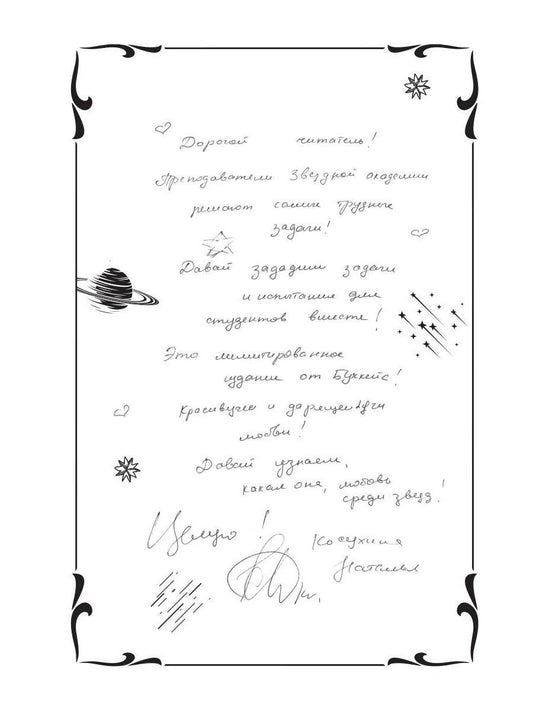 Дорогой читатель!
Преподаватели Звездной академии
решают самые трудные
задачи!
Давай зададим задачи
и испытание для
студентов вместе!
Это лимитированное
издание от Буккейс!
Красивущее и дарящее
любви!
Давай узнаем,
какая она, любовь
среди звезд!
Целую!
Косухина
Наталья